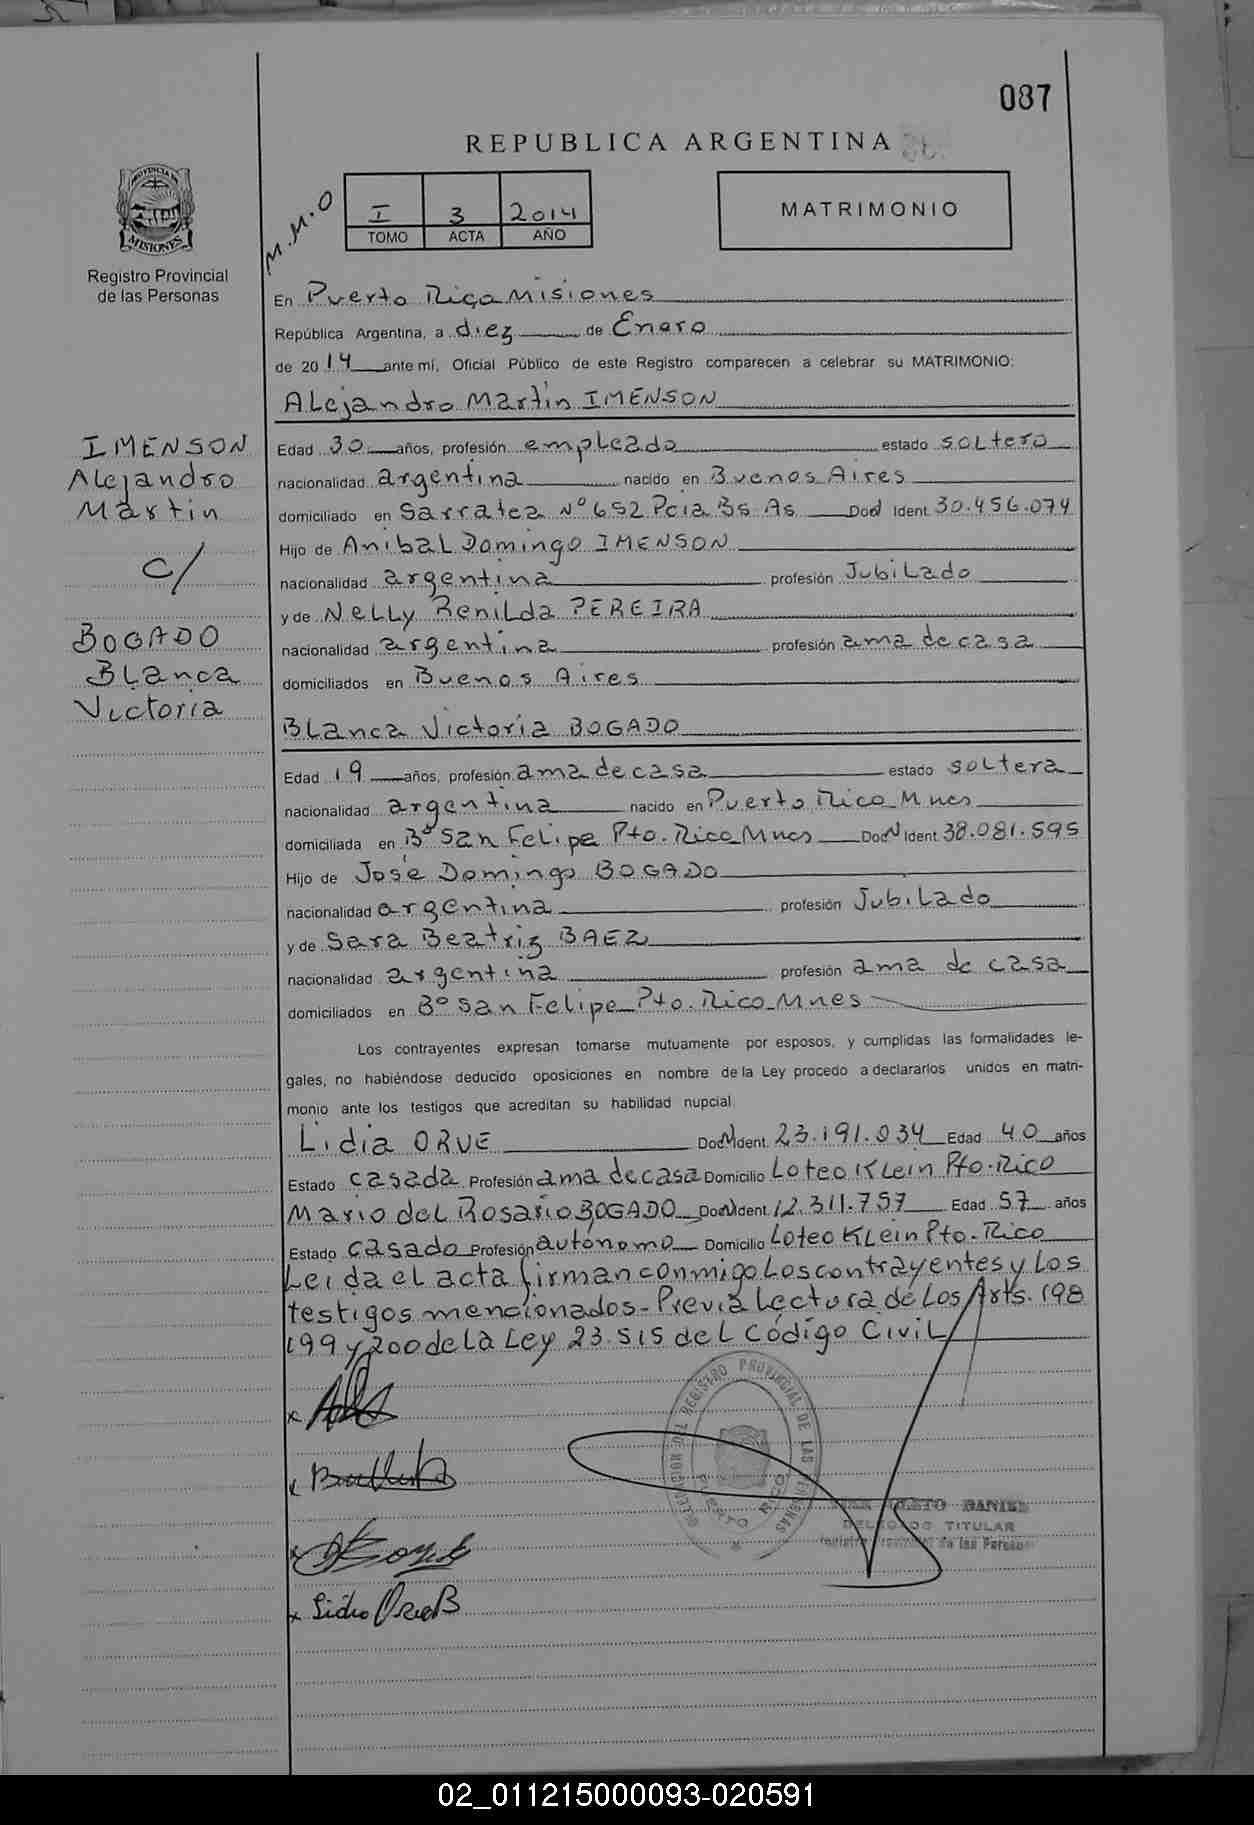 087
REPUBLICA ARGENTINA
M.M.O
I 3 2014
TOMO ACTA AÑO
MATRIMONIO
PROVINCIA DE
MISIONES
Registro Provincial
de las Personas
En Puerto Rico Misiones
República Argentina, a diez de Enero
de 2014 ante mí, Oficial Público de este Registro comparecen a celebrar su MATRIMONIO:
Alejandro Martin IMENSON
IMENSON
Alejandro
Martin
c/
BOGADO
Blanca
Victoria
Edad 30 años, profesión empleado estado soltero
nacionalidad argentina nacido en Buenos Aires
domiciliado en Sarratea Nº 652 Pcia Bs. As Doc Ident. 30.456.074
Hijo de Anibal Domingo IMENSON
nacionalidad argentina profesión Jubilado
y de Nelly Renilda PEREIRA
nacionalidad argentina profesión ama de casa
domiciliados en Buenos Aires
Blanca Victoria BOGADO
Edad 19 años, profesión ama de casa estado soltera
nacionalidad argentina nacido en Puerto Rico Mnes
domiciliada en Bº San Felipe Pto. Rico Mnes Doc N Ident. 38.081.595
Hijo de José Domingo BOGADO
nacionalidad argentina profesión Jubilado
y de Sara Beatriz BAEZ
nacionalidad argentina profesión ama de casa
domiciliados en Bº San Felipe Pto. Rico Mnes
Los contrayentes expresan tomarse mutuamente por esposos, y cumplidas las formalidades le-
gales, no habiéndose deducido oposiciones en nombre de la Ley procedo a declararlos unidos en matri-
monio ante los testigos que acreditan su habilidad nupcial
Lidia ORUE Doc N Ident. 23.191.034 Edad 40 años
Estado casada Profesión ama de casa Domicilio Loteo Klein Pto. Rico
Mario del Rosario BOGADO Doc N Ident. 12.311.757 Edad 57 años
Estado casado Profesión autónomo Domicilio Loteo Klein Pto. Rico
Leida el acta firman conmigo los contrayentes y los
testigos mencionados - Previa lectura de los Arts. 198
199 y 200 de la Ley 23.515 del Código Civil
DELEGACION DEL REGISTRO PROVINCIAL DE LAS PERSONAS
PUERTO RICO
DANIEL
DELEGADO TITULAR
Registro Provincial de las Personas
02_011215000093-020591